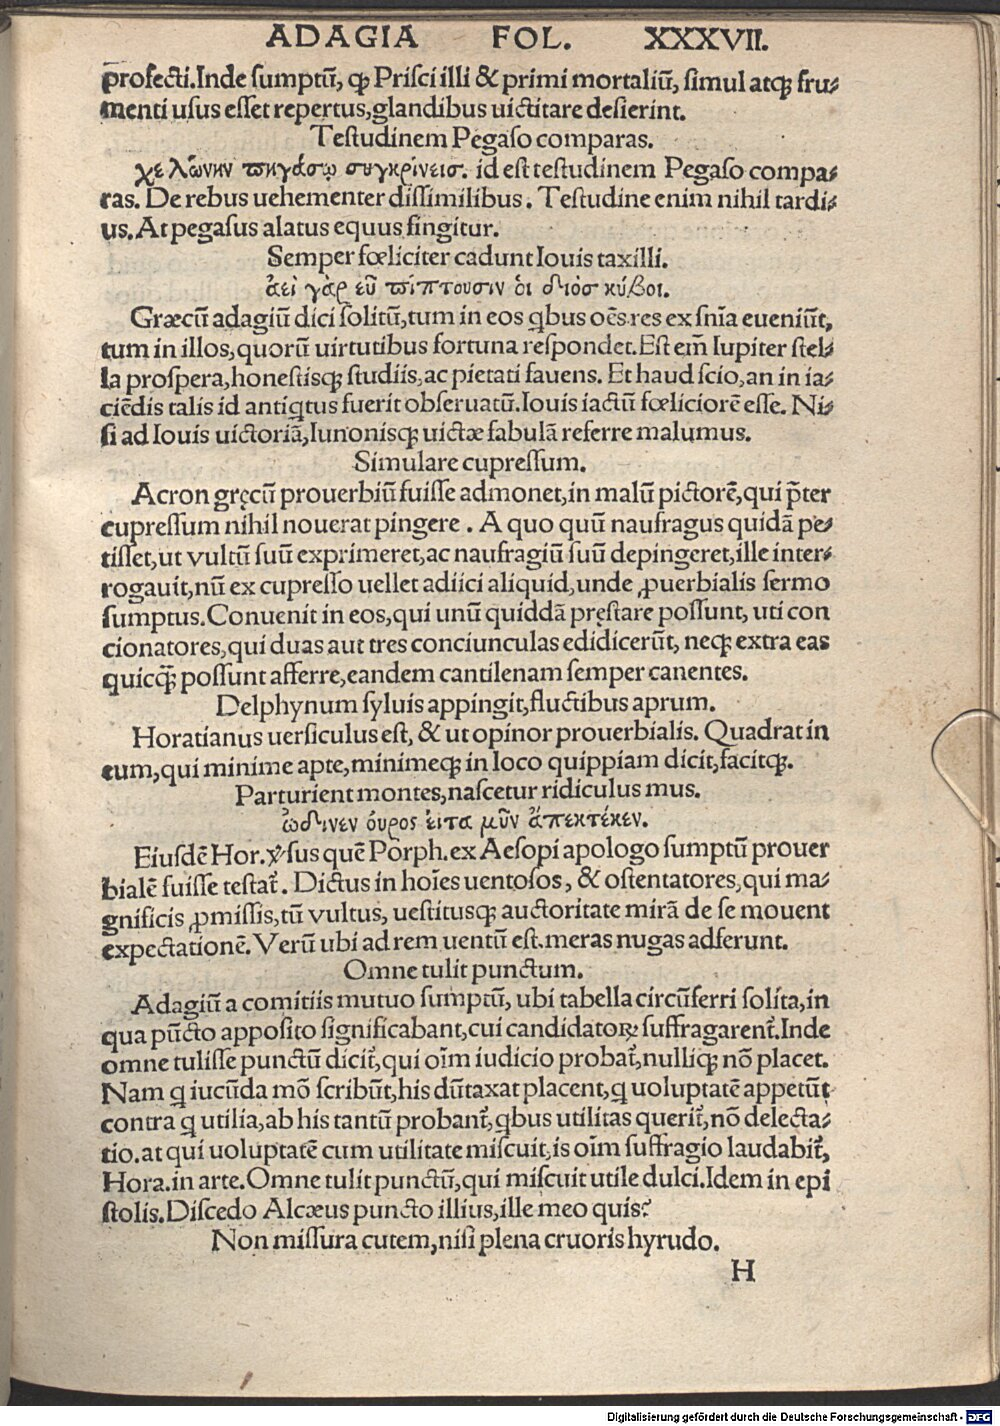 ADAGIA FOL. XXXVII.
ꝓfecti.Inde ſumptū, ꝙ Priſci illi & primi mortaliū, ſimul atqꝫ fru⸗
menti uſus eſſet repertus,glandibus uictitare deſierint.
Teſtudinem Pegaſo comparas.
χελώνην πηγάσῳ συγκρίνεις. id eſt teſtudinem Pegaſo compa⸗
ras. De rebus uehementer diſſimilibus. Teſtudine enim nihil tardi⸗
us.At pegaſus alatus equus fingitur.
Semper fœliciter cadunt Iouis taxilli.
ἀεὶ γὰρ εὖ πίπτουσιν ὁι διὸσ κύβοι.
Græcū adagiū dici ſolitū,tum in eos qbus oēs res ex ſnīa eueniūt,
tum in illos,quorū uirtutibus fortuna reſpondet.Eſt em̄ Iupiter ſtel⸗
la proſpera,honeſtisqꝫ ſtudiis,ac pietati fauens. Et haud ſcio,an in ia⸗
ciēdis talis id antiqtus fuerit obſeruatū.Iouis iactū fœliciorē eſſe. Ni⸗
ſi ad Iouis uictoriā,Iunonisqꝫ uictæ fabulā referre malumus.
Simulare cupreſſum.
Acron gręcū prouerbiū fuiſſe admonet,in malū pictorē,qui p̄ter
cupreſſum nihil nouerat pingere. A quo quū naufragus quidā pe⸗
tiſſet,ut vultū ſuū exprimeret,ac naufragiū ſuū depingeret,ille inter⸗
rogauit,nū ex cupreſſo uellet adiici aliquid,unde ꝓuerbialis ſermo
ſumptus.Conuenit in eos,qui unū quiddā pręſtare poſſunt, uti con
cionatores,qui duas aut tres conciunculas edidicerūt, neqꝫ extra eas
quicq̄ꝫ poſſunt afferre,eandem cantilenam ſemper canentes.
Delphynum ſyluis appingit,fluctibus aprum.
Horatianus uerſiculus eſt, & ut opinor prouerbialis. Quadrat in
eum,qui minime apte,minimeqꝫ in loco quippiam dicit,facitqꝫ.
Parturient montes,naſcetur ridiculus mus.
ὠδινεν όυρος ἐιτα μῦν ἄπεκτέκεν.
Eiuſdē Hor.ꝟſus quē Porph.ex Aeſopi apologo ſumptū prouer
bialē fuiſſe teſtat᷑. Dictus in hoīes uentoſos, & oſtentatores,qui ma⸗
gnificis ꝓmiſſis,tū vultus, ueſtitusqꝫ auctoritate mirā de ſe mouent
expectationē. Verū ubi ad rem uentū eſt.meras nugas adferunt.
Omne tulit punctum.
Adagiū a comitiis mutuo ſumptū, ubi tabella circūferri ſolita,in
qua pūcto appoſito ſignificabant,cui candidatoꝝ ſuffragarent᷑.Inde
omne tuliſſe punctū dicit᷑,qui oīm iudicio probat᷑,nulliqꝫ nō placet.
Nam q iucūda mō ſcribūt,his dūtaxat placent,q uoluptatē appetūt
contra q utilia,ab his tantū probant᷑,qbus utilitas querit᷑,nō delecta⸗
tio.at qui uoluptatē cum utilitate miſcuit,is oīm ſuffragio laudabit᷑,
Hora.in arte.Omne tulit punctū,qui miſcuit utile dulci.Idem in epi
ſtolis.Diſcedo Alcæus puncto illius,ille meo quis?
Non miſſura cutem,niſi plena cruoris hyrudo.
H
Digitalisierung gefördert durch die Deutsche Forschungsgemeinschaft - DFG